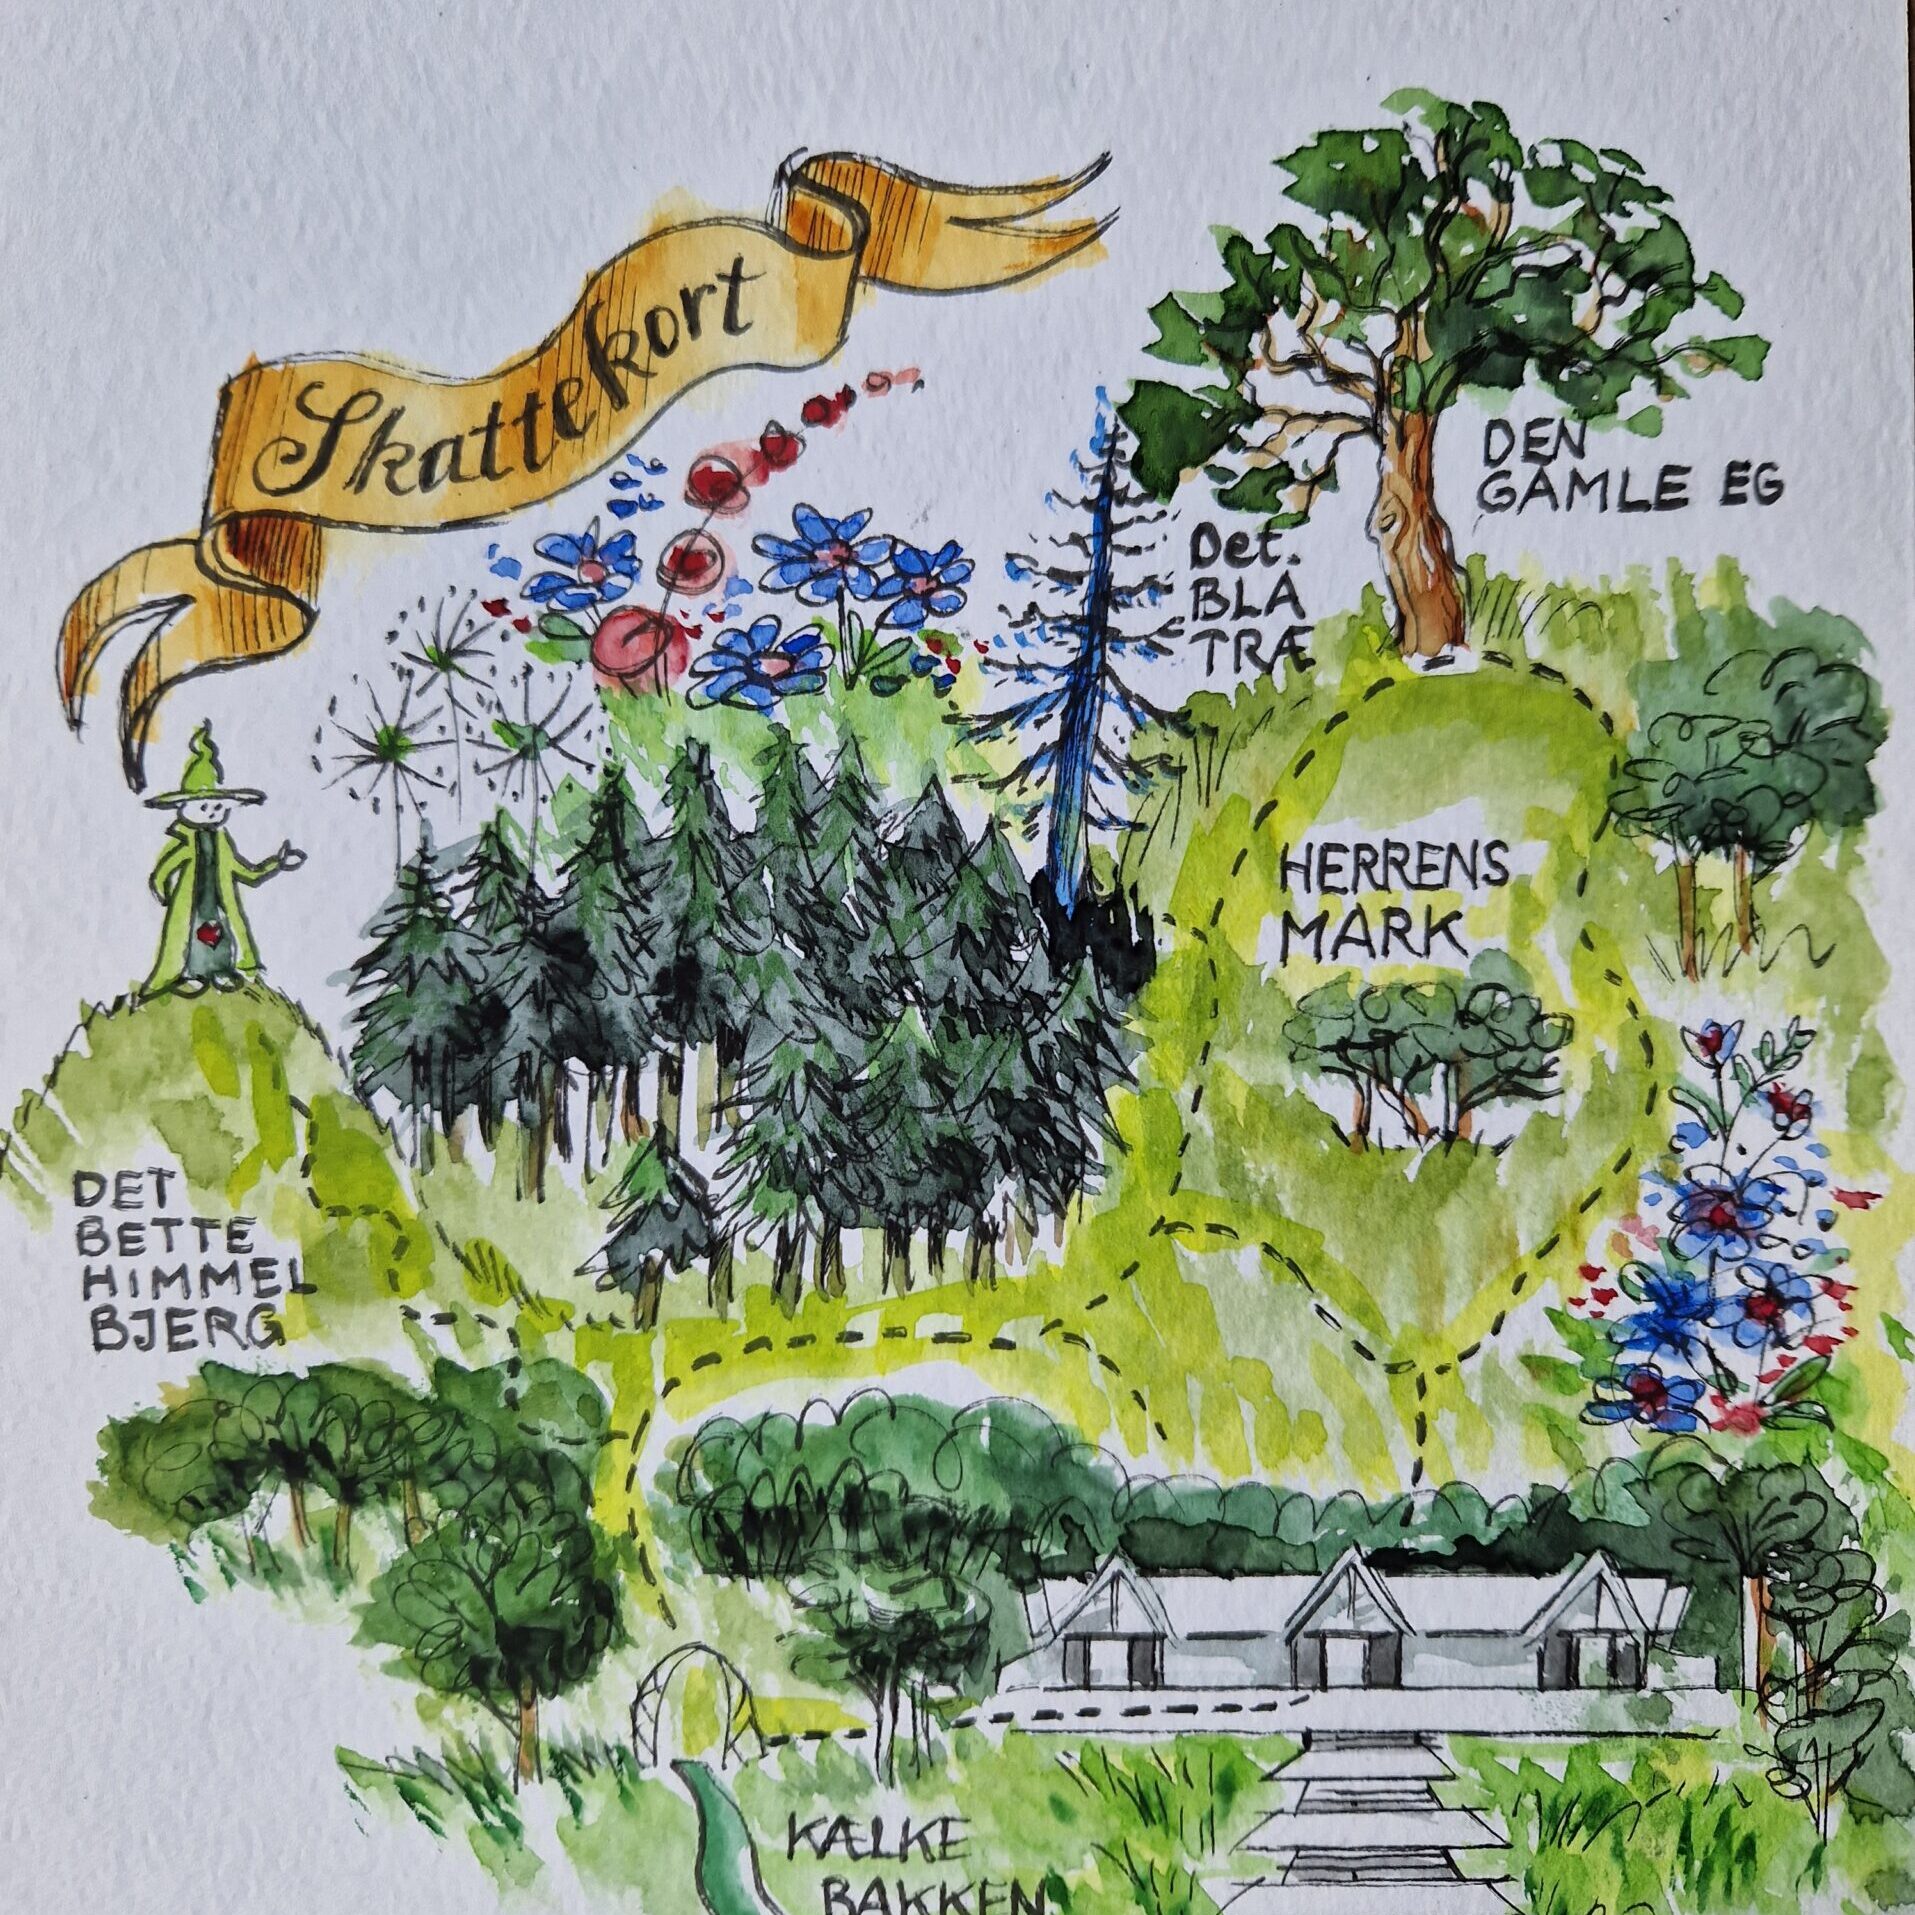 Skattekort
DEN
GAMLE EG
Det.
BLÅ
TRÆ
HERRENS
MARK
DET
BETTE
HIMMEL
BJERG
KÆLKE
BAKKEN